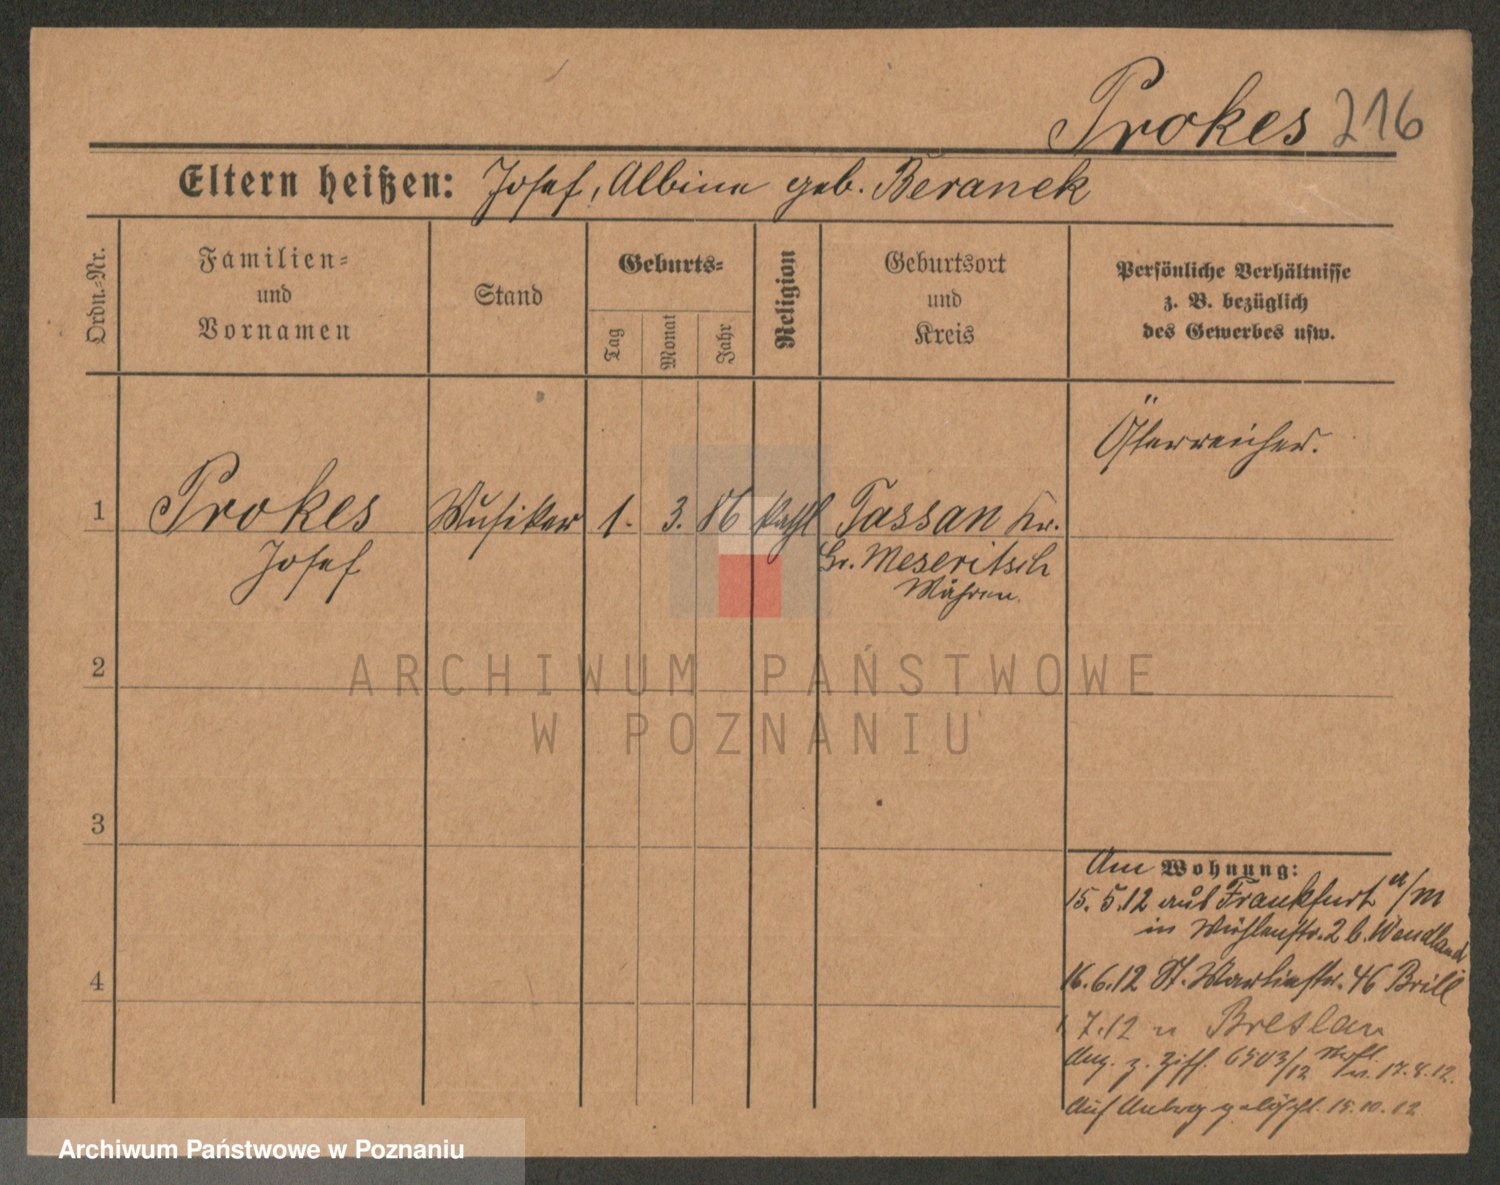 Prokes 216
Eltern heißen: Josef, Albine geb. Beranek
Ordn.-Nr.
Familien-
und
Vornamen
Stand
Geburts-
Tag
Monat
Jahr
Religion
Geburtsort
und
Kreis
Persönliche Verhältnisse
z. B. bezüglich
des Gewerbes usw.
Österreicher.
1 Prokes Musiker 1. 3. 86 kath Tassan Kr.
Josef Gr. Meseritsch
Mähren.
2
ARCHIWUM PAŃSTWOWE
W POZNANIU
3
4
Am Wohnung:
15. 5.12 aus Frankfurt a/M
in Mühlenstr. 2 b. Wendland
16.6.12 St. Martinstr. 46 Brill
7.12 n Breslau
6503/12
15.10.12
Archiwum Państwowe w Poznaniu